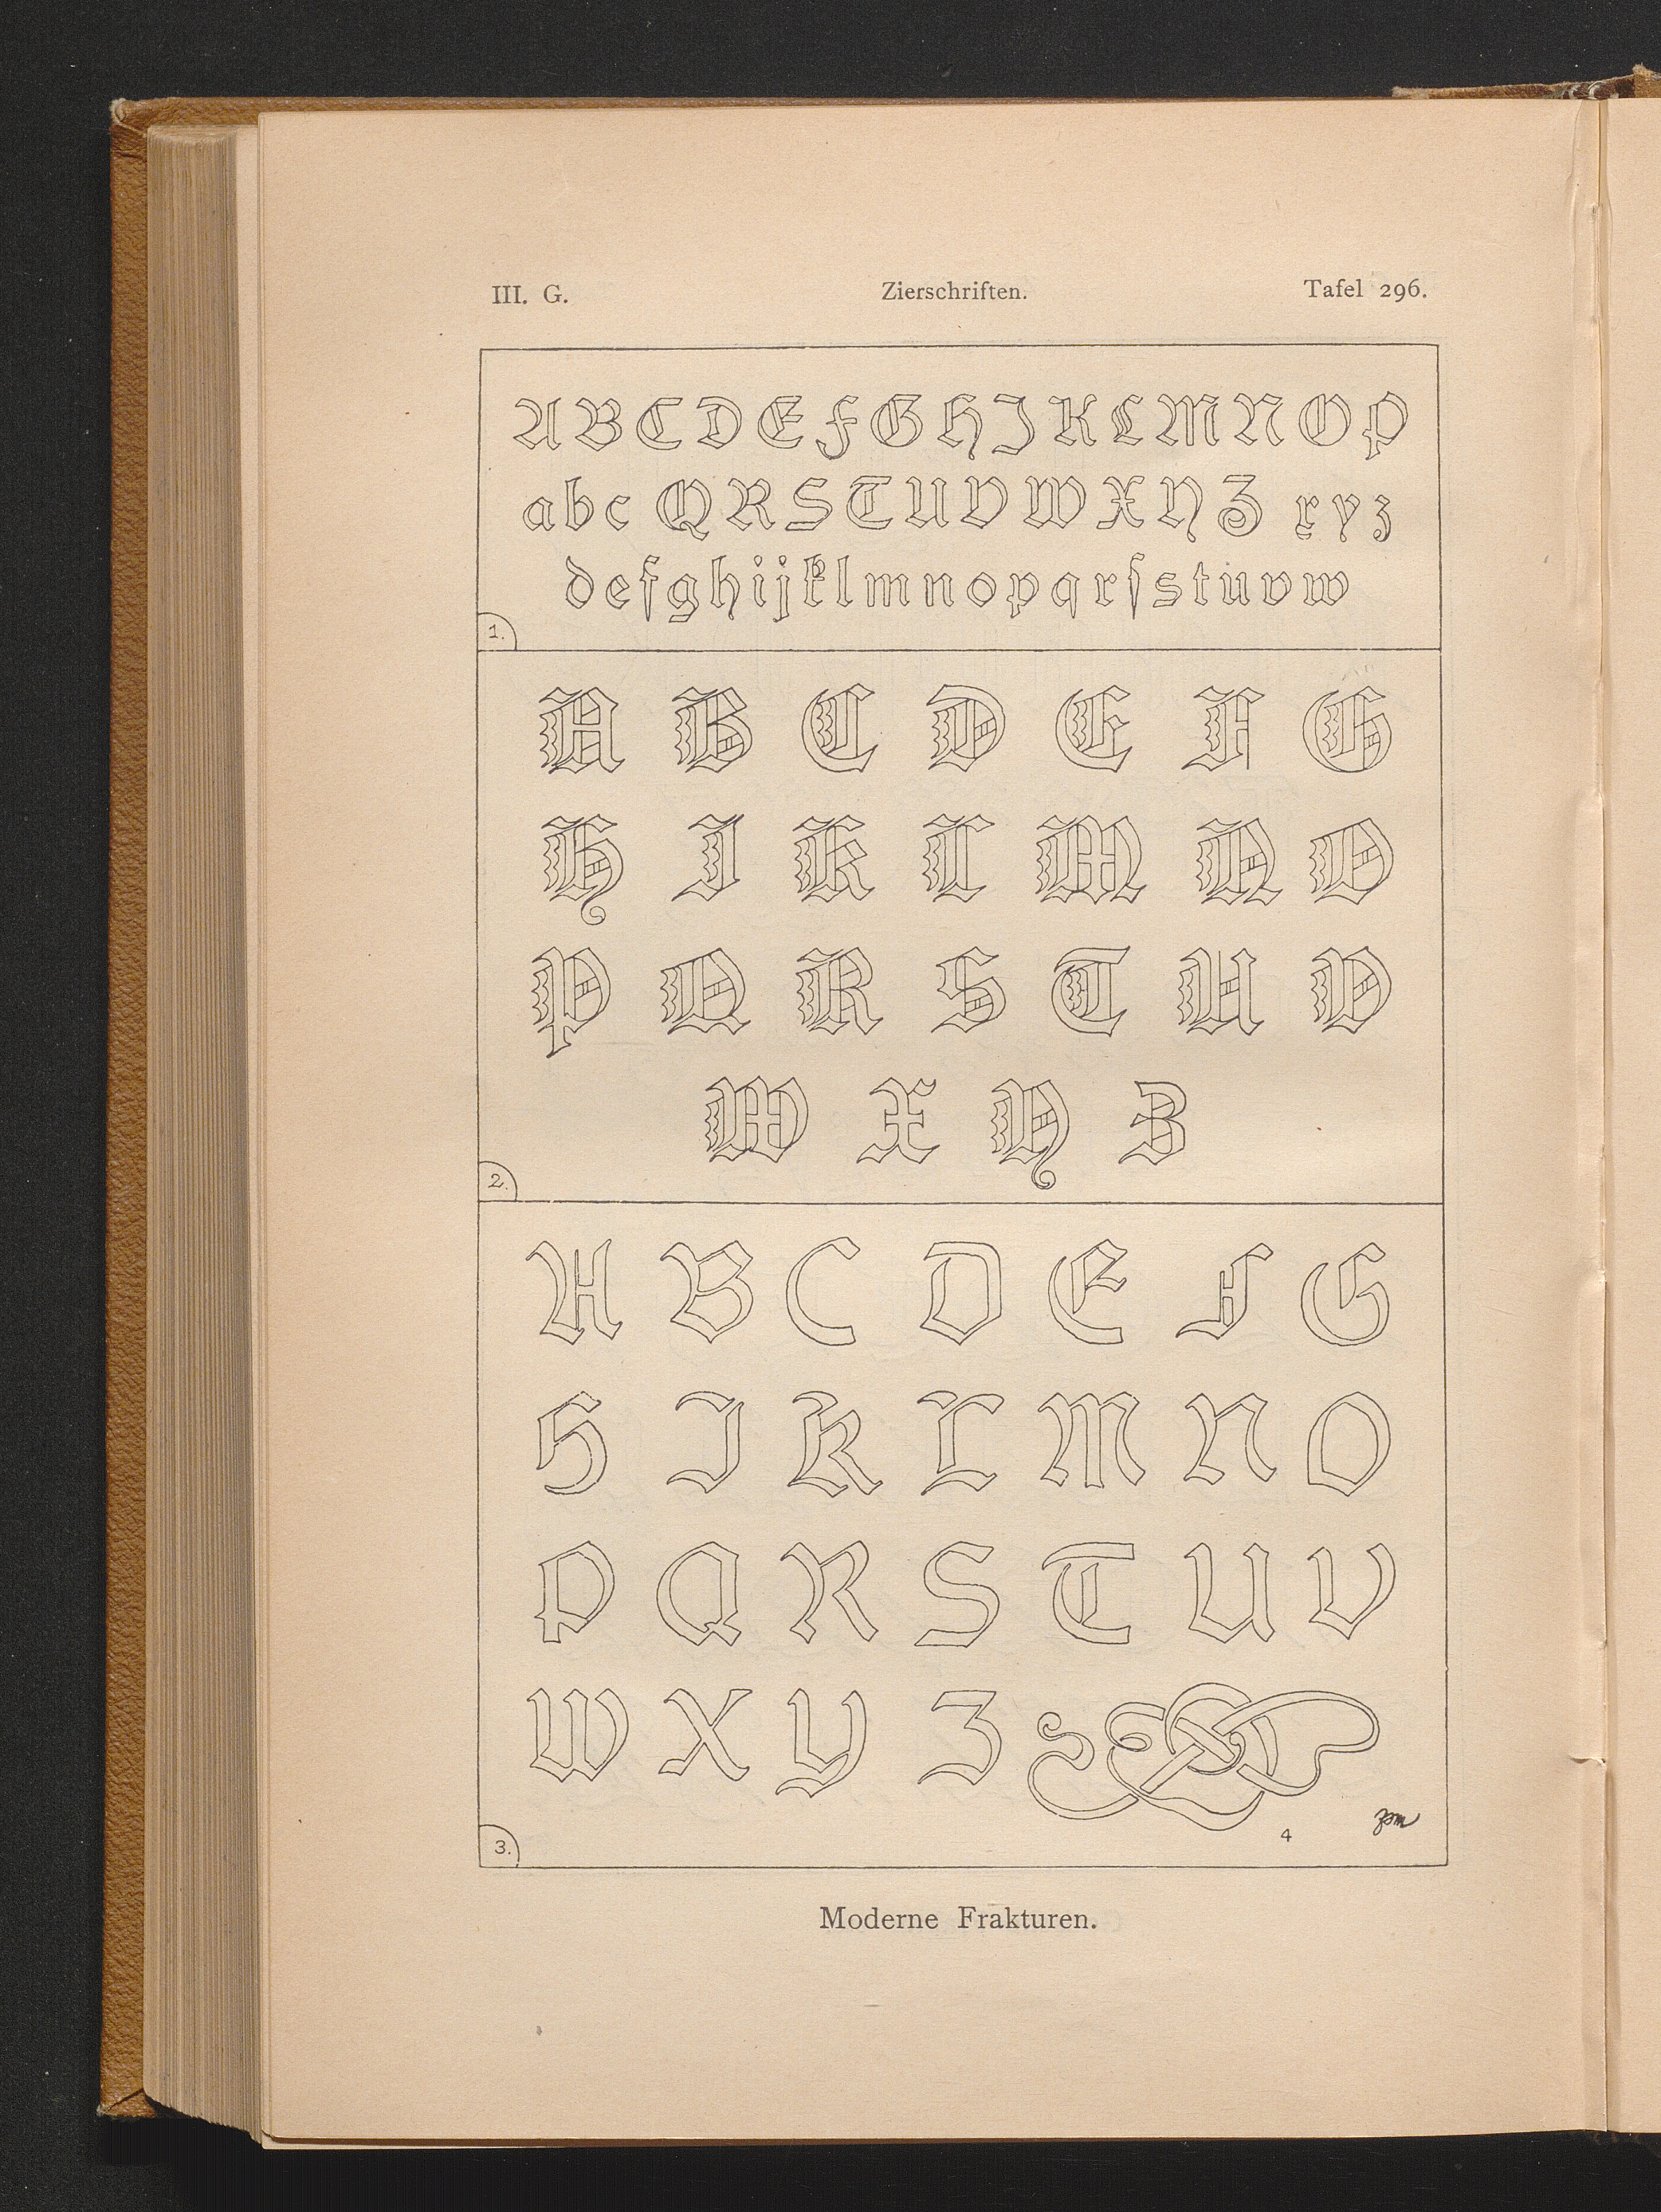 III. G. Zierschriften. Tafel 296.
A B C D E F G H I K L M N O P
a b c Q R S T U V W X Y Z x y z
d e f g h i j k l m n o p q r ſ s t u v w
1.
A B C D E F G
H I K L M N O
P Q R S T U V
W X Y Z
2.
A B C D E F G
H I K L M N O
P Q R S T U V
W X Y Z
4
3.
Moderne Frakturen.